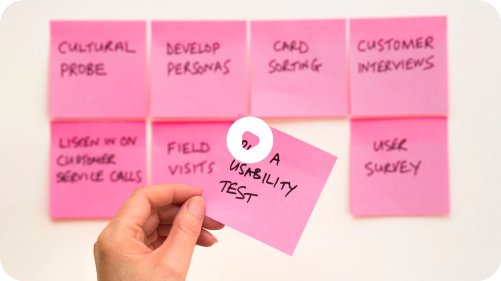 CULTURAL
PROBE
DEVELOP
PERSONAS
CARD
SORTING
CUSTOMER
INTERVIEWS
LISTEN IN ON
CUSTOMER
SERVICE CALLS
FIELD
VISITS
A
USABILITY
TEST
USER
SURVEY